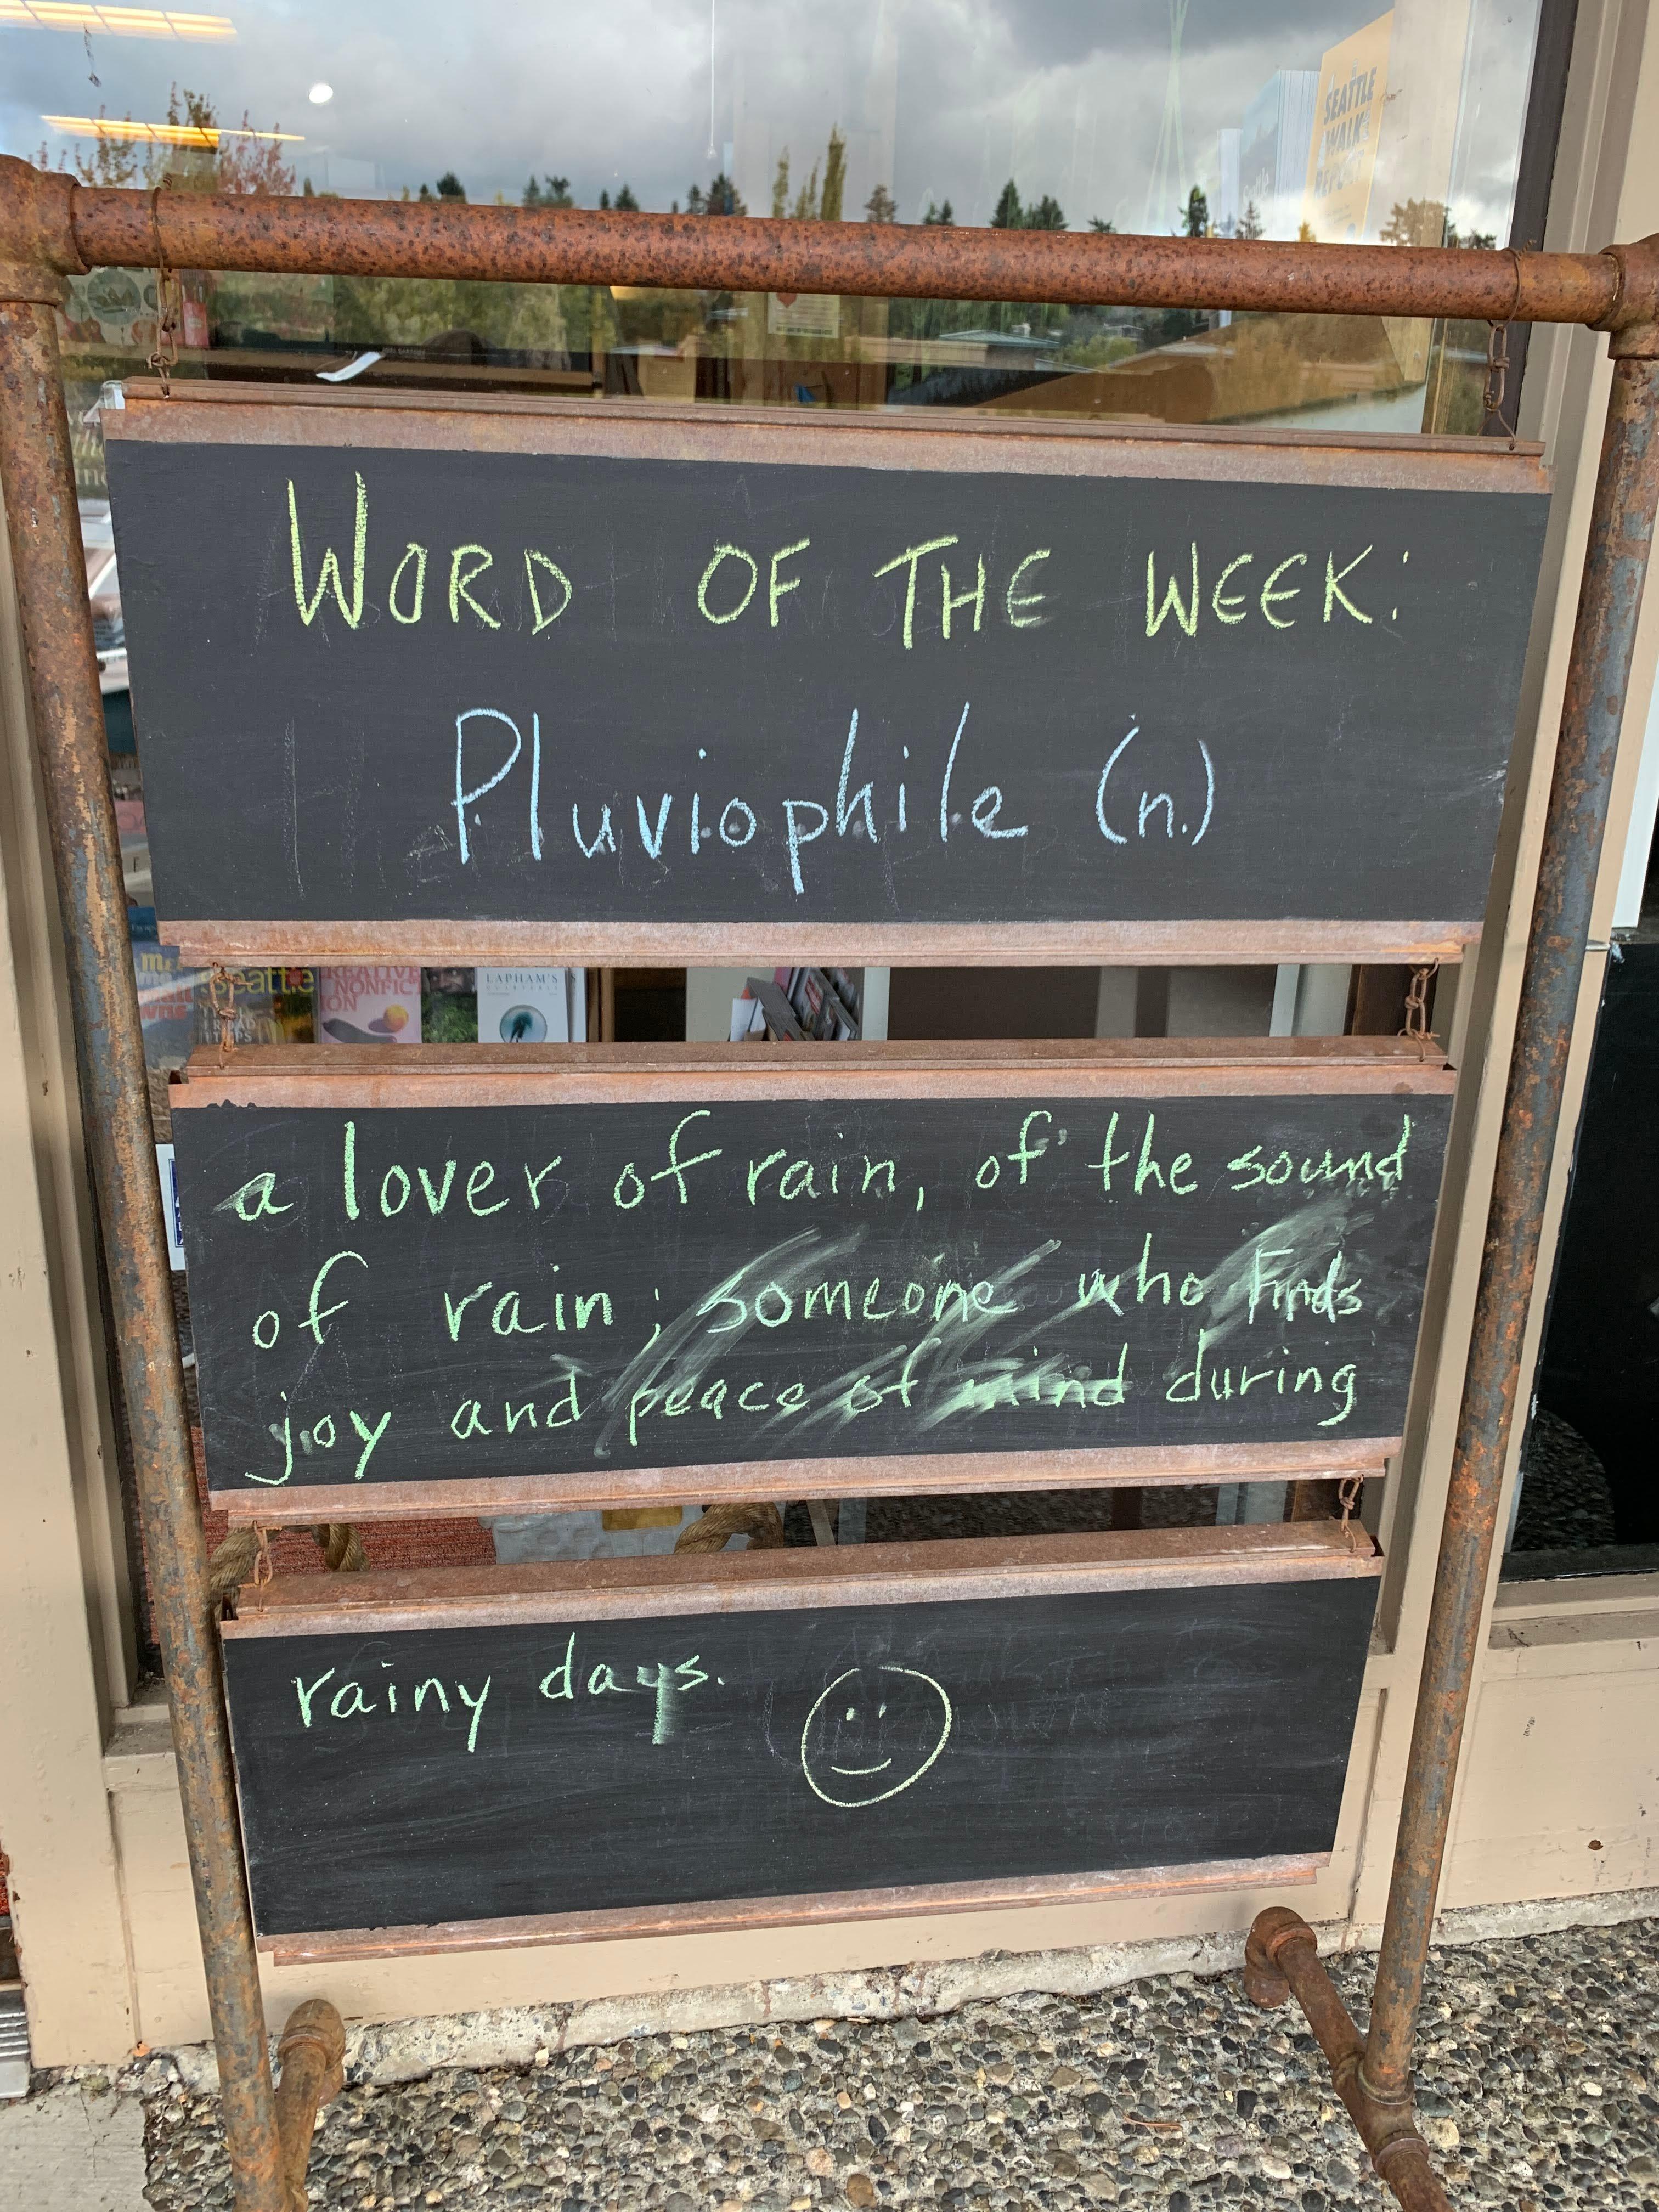 SEATTLE
WALK
REPORT
WORD OF THE WEEK:
Pluviophile (n.)
seattle
CREATIVE
NONFICT
ION
LAPHAM'S
QUARTERLY
a lover of rain, of the sound
of rain; someone who finds
joy and peace of mind during
rainy days.